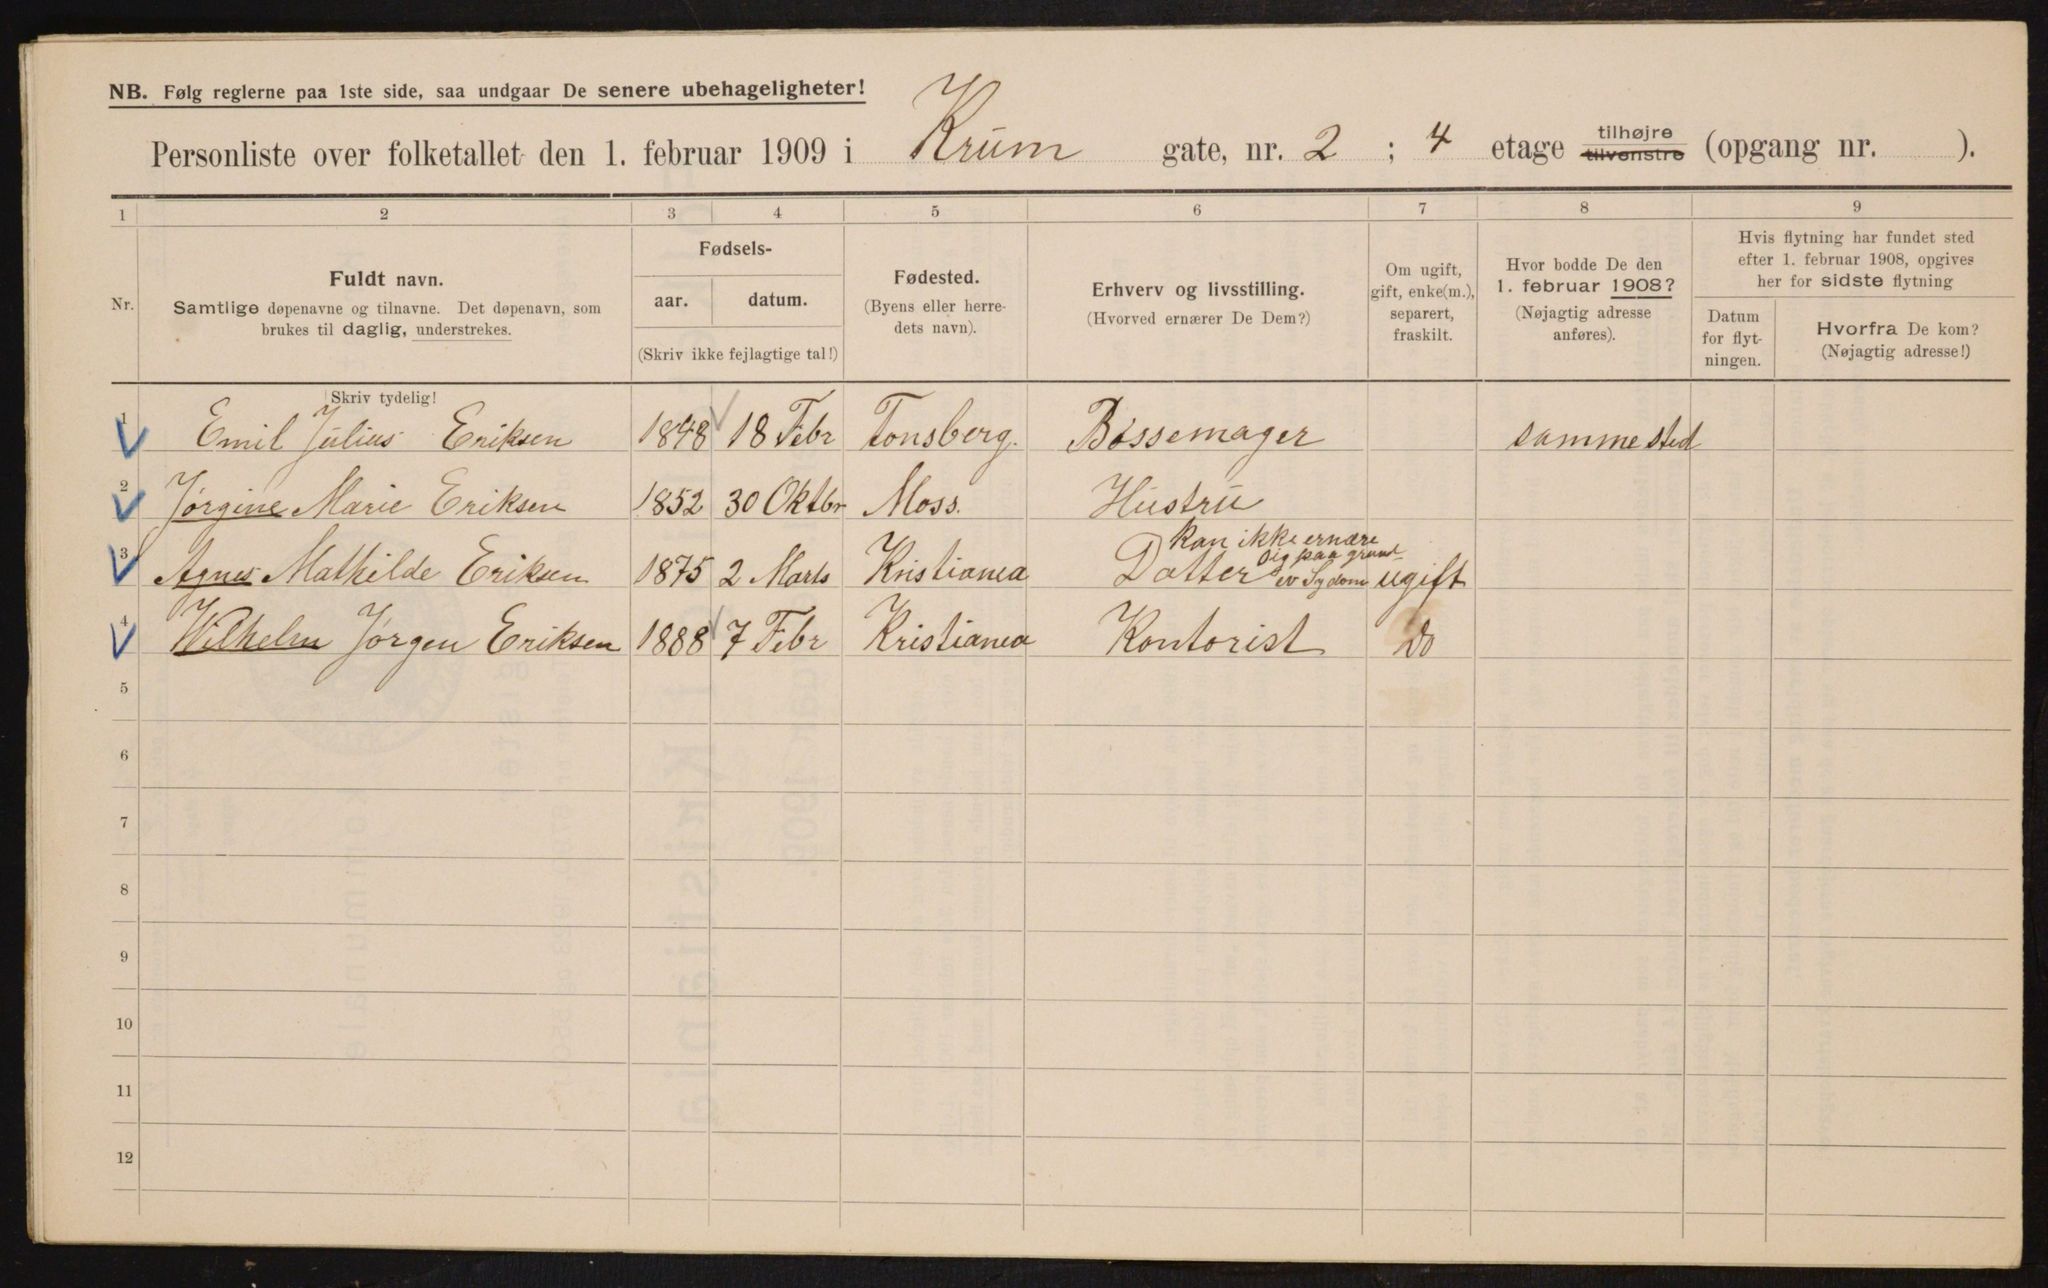 NB. Følg reglerne paa 1ste side, saa undgaar De senere ubehageligheter!
Personliste over folketallet den 1. februar 1909 i Krum gate, nr. 2 ; 4 etage tilhøjre tilvenstre (opgang nr. ).
1 2 3 4 5 6 7 8 9
Nr.
Fuldt navn.
Samtlige døpenavne og tilnavne. Det døpenavn, som
brukes til daglig, understrekes.
Fødsels-
aar. datum.
(Skriv ikke fejlagtige tal!)
Fødested.
(Byens eller herre-
dets navn).
Erhverv og livsstilling.
(Hvorved ernærer De Dem?)
Om ugift,
gift, enke(m.),
separert,
fraskilt.
Hvor bodde De den
1. februar 1908?
(Nøjagtig adresse
anføres).
Hvis flytning har fundet sted
efter 1. februar 1908, opgives
her for sidste flytning
Datum
for flyt-
ningen.
Hvorfra De kom?
(Nøjagtig adresse!)
Skriv tydelig!
1 Emil Julius Eriksen 1848 18 Febr Tonsberg. Bøssemager samme sted
2 Jørgine Marie Eriksen 1852 30 Oktbr Moss. Hustru
3 Agnes Mathilde Eriksen 1875 2 Marts Kristiania Datter kan ikke ernære sig paa grund av Sydom ugift
4 Wilhelm Jørgen Eriksen 1888 7 Febr Kristiania Kontorist Do
5
6
7
8
9
10
11
12